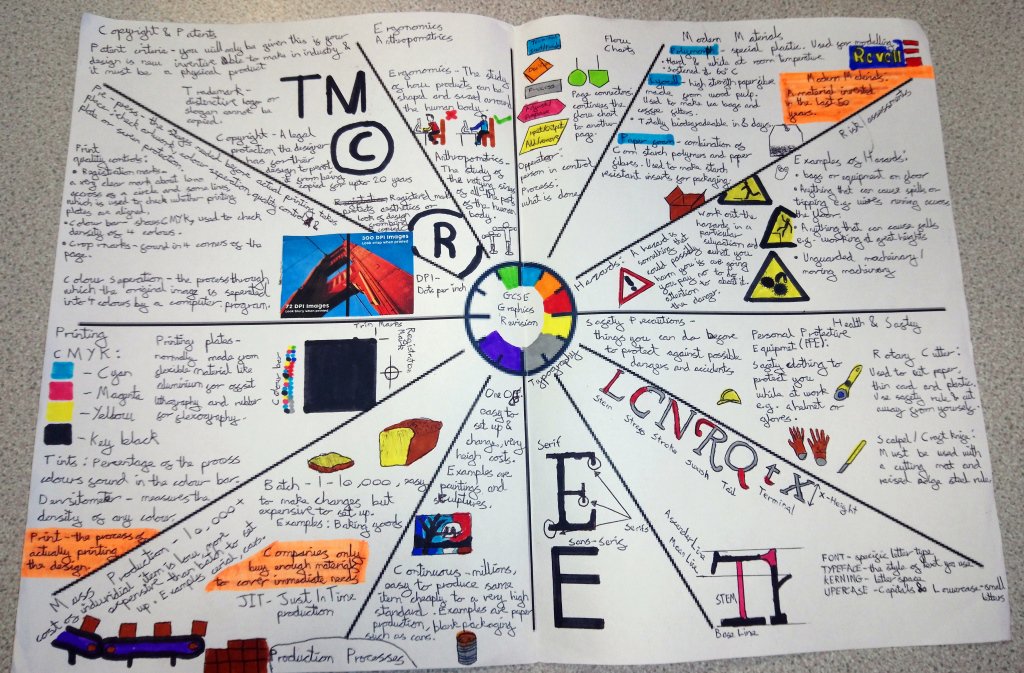 Copyright & Patents
Patent criteria - you will only be given this is your
design is new inventive able to make in industry &
it must be a physical product
Trademark -
distinctive logo or
slogan cannot be
copied.
TM
C
Copyright - A legal
protection the designer
has for their
from being
copied for upto 20 years
Registered
R
Pre-press - the stages needed before actual printing takes
place.
Print
quality controls:
• Registration mark -
a very clear mark about 1cm
across as a circle and some lines
which is used to check whether printing
plates are aligned.
• Colour bar - shows CMYK, used to check
density of 4 colours.
• Crop marks - found in 4 corners of the
page.
Colour Separation - the process through
which the original image is separated
into 4 colours by a computer program.
300 DPI Images
Look crisp when printed
72 DPI Images
Look blurry when printed
DPI -
Dots per inch
Ergonomics
& Anthropometrics
Ergonomics - The study
of how products can be
shaped and sized around
the human body.
Anthropometrics -
The study of
the various sizes
of all the parts
of the human
body.
Flow
Charts
Process
Page connectors
continues the
flow chart
to another
page.
Operator -
person in control
Process:
what is done
Modern Materials
special plastic. Used for modelling.
• Hard while at room temperature.
• Softened at 60°C
high strength paper like
made from wood pulp.
Used to make tea bags and
coffee filters.
• Totally biodegradable in 8 days.
combination of
Corn starch polymers and paper
fibres. Used to make starch
resistant inserts for packaging.
Revell
Modern Materials
A material invented
in the last 50
years.
Risk Assessments
Examples of Hazards:
• bags or equipment on floor
• Anything that can cause spills or
tripping e.g. wires running across
the floor
• Anything that can cause falls
e.g. working at great heights
• Unguarded machinery /
moving machinery
Hazards - A hazard is
something that
could possibly
harm you if you
pay no
attention to
the danger.
work out the
hazards in a
particular
situation and
what you
are going
to do
about it.
GCSE
Graphics
Revision
Printing
CMYK:
- Cyan
- Magenta
- Yellow
- Key black
Tints: Percentage of the process
colours found in the colour bar.
Densitometer - measures the
density of any colour
Print - the process of
actually printing
the design.
Printing plates -
normally made from
flexible material like
aluminium for offset
lithography and rubber
for flexography.
Trim Marks
Colour bar
Registration
Mark
Mass Production - 10,000 +
cost of individual item is low, most
expensive than batch to set
up. Examples cars.
Batch - 1 - 10,000, easy
to make changes but
expensive to set up.
Examples: Baking goods.
Companies only
buy enough materials
to cover immediate needs
JIT - Just In Time
production
Production Processes
One Off
easy to
set up &
change, very
high costs.
Examples are
paintings and
sculptures.
Continuous - millions,
easy to produce same
item cheaply to a very high
standard. Examples are paper
production, blank packaging
such as cans.
Typography
Serif
E
Serifs
Sans-serif
E
LCNRQtX
Stem
Stress
Stroke
Swash
Tail
Terminal
X-Height
Ascender Line
Mean Line
STEM
Base Line
FONT - specific letter type
TYPEFACE - the style of font you use
KERNING - letter space
UPPERCASE - Capitals & Lowercase - small
letters
Health & Safety
Safety Precautions -
things you can do before
to protect against possible
dangers and accidents
Personal Protective
Equipment (PPE):
Safety clothing to
protect you
while at
work
e.g. a helmet or
gloves.
Rotary Cutter:
Used to cut paper,
thin card and plastic.
Use safety rule & cut
away from yourself.
Scalpel / Craft Knife:
Must be used with
a cutting mat and
raised edge steel rule.